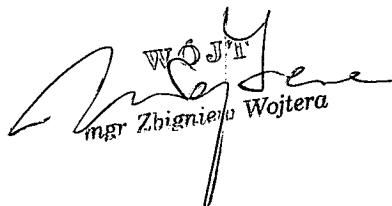 WÓJT
mgr Zbigniew Wojtera